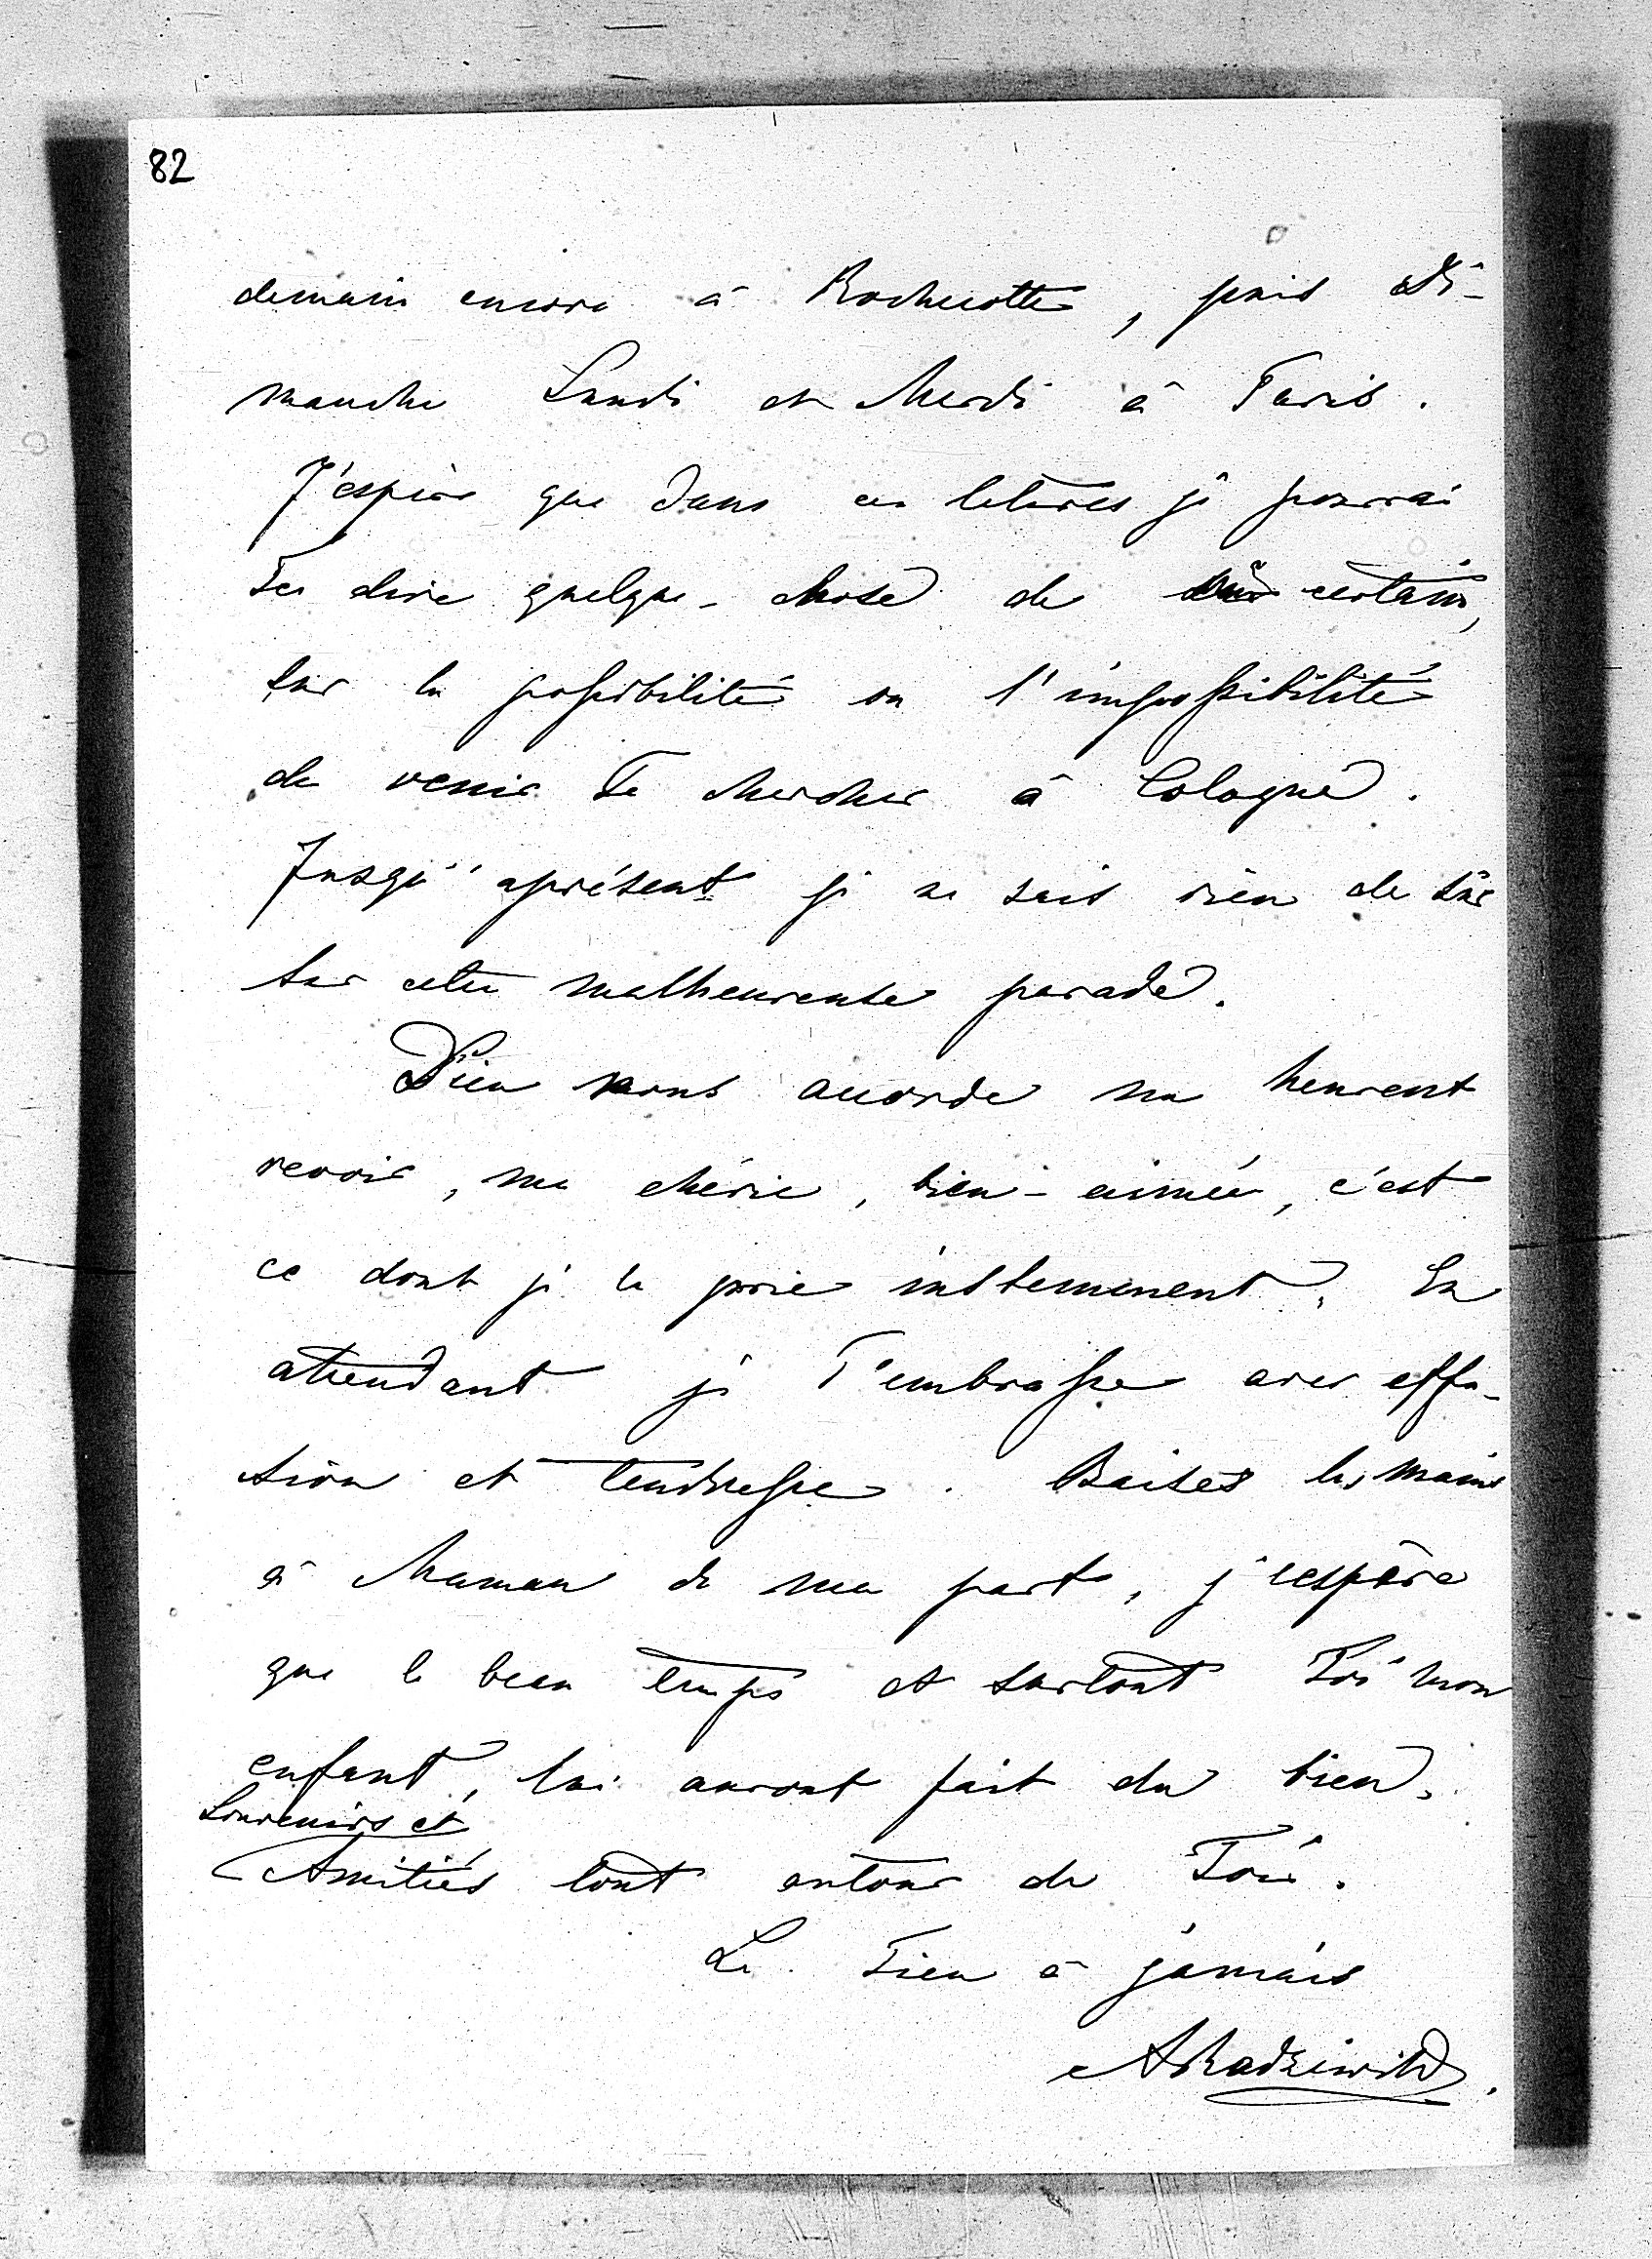 82
demain encore à Rochecotte, puis Di-
manche Lundi et Mardi à Paris.
J'espère que dans ces lettres je pourrai
Te dire quelque-chose de certain,
sur la possibilité ou l'impossibilité
de venir Te chercher à Cologne.
Jusqu'àprésent je ne sais rien de sûr
sur cette malheureuse parade.
Dieu nous accorde un heureux
revoir, ma chérie, bien-aimée, c'est
ce dont je le prie instemment. En
attendant je T'embrasse avec effu-
sion et tendresse. Baises les mains
à Maman de ma part, j'espère
que le beau temps et surtout Toi mon
enfant, lui auront fait du bien.
Souvenirs et
Amitiés tout autour de Toi.
Le Tien à jamais
ARadziwill.